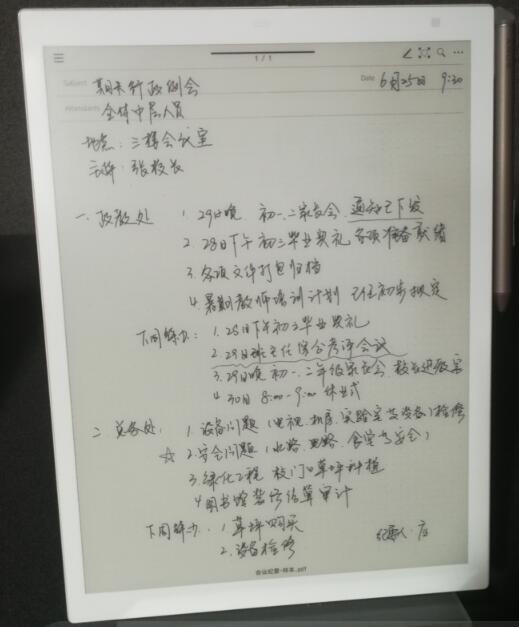 1 / 1
Subject 期末行政例会
Date 6月25日 9:30
Attendants 全体中层人员
地点：三楼会议室
主持：张校长
一. 政教处 1. 29日晚 初一.二家长会. 通知已下发
2. 28日下午初三毕业典礼 各项准备就绪
3. 各项文件打包归档
4. 暑期教师培训计划 已经初步拟定
下周解决： 1. 28日下午初三毕业典礼
2. 29日班主任综合考评会议
3. 29日晚 初一.二年级家长会. 校长进教室
4. 30日 8:00-9:00 休业式
二 总务处: 1. 设备问题（电视.机房.实验室等设备）检修
☆ 2. 安全问题（水路.电路.食堂等安全）
3. 绿化工程 校门口草坪种植
4. 图书馆装修结算审计
下周解决. 1. 草坪购买
2. 设备检修
纪要人：
会议纪要-样本.pdf